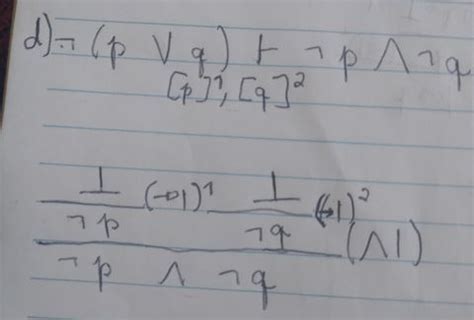 d) ¬ (p ∨ q) ⊢ ¬p ∧ ¬q
[p]¹, [q]²
⊥ (→I)¹ ⊥ (→I)²
¬p ¬q (∧I)
¬p ∧ ¬q